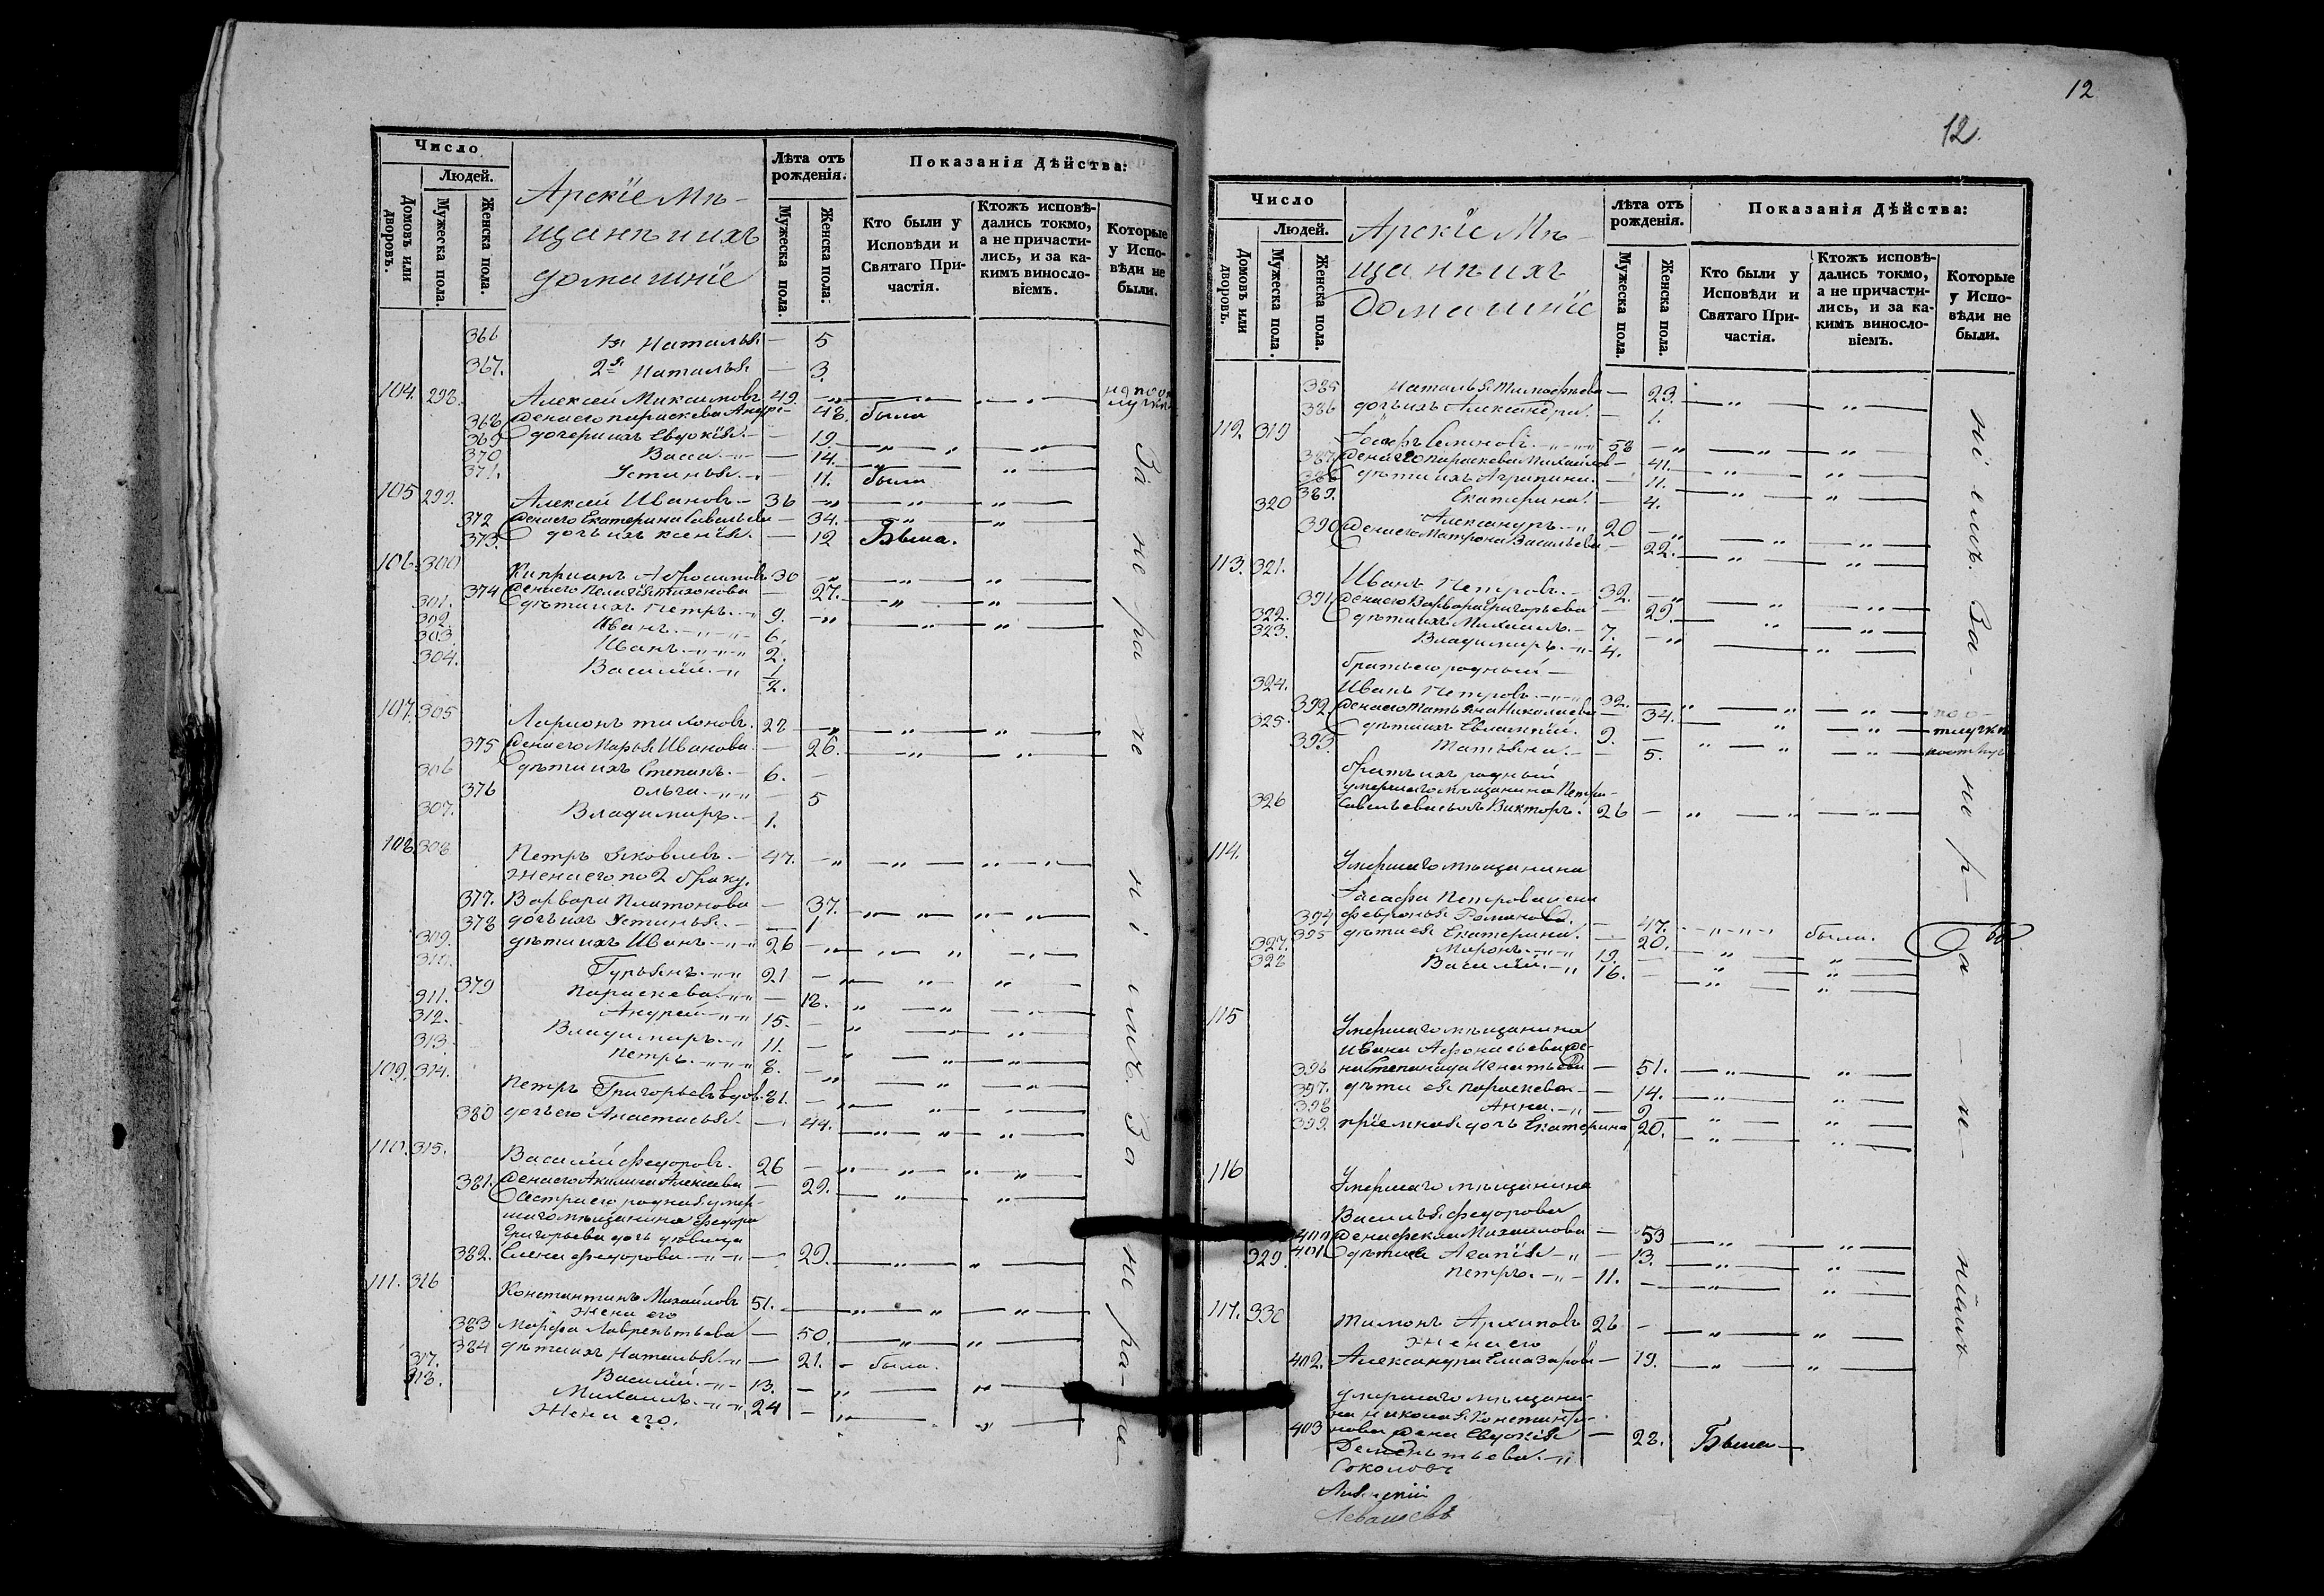 Число
Людей.
Домовъ или дворовъ.
Мужеска пола.
Женска пола.
Арскіе Мѣ-
щане и ихъ
домашніе
Лѣта отъ рожденія.
Мужеска пола.
Женска пола.
Показанія Дѣйства:
Кто были у Исповѣди и Святаго При-частія.
Ктожъ исповѣ-дались токмо, а не причасти-лись, и за ка-кимъ винословіемъ.
Которые у Испо-вѣди не были.
366 1я Наталья — 5
367. 2я Наталья — 3.
104. 298. Алексей Максимовъ 49.
368 жена его параскева — 48. была
369 дочери ихъ Евдокія — 19.
370 Васса — 14.
371. Устинья — 11. была
105 299. Алексей Ивановъ — 36
372 жена его Екатерина Савельева — 34.
373. дочь ихъ ксенія — 12 Была.
106. 300 Киприанъ 30
374 жена его Пелагія Тихонова — 27.
301. дѣти ихъ Петръ 9.
302. Иванъ 6.
303. Иванъ 2.
304. Василій 1/2.
107. 305 Ларионъ тихоновъ 28
375 жена его Марья Иванова — 26.
306 дѣти ихъ Степанъ — 6.
376 ольга — 5
307. Владимиръ — 1.
108. 308 Петръ Яковлевъ — 47.
жена его по 2 браку.
377. Варвара Платонова — 37.
378 дочь ихъ Устинья — 1
309. дѣти ихъ Иванъ 26
310. Гурьянъ 21
379 Параскева — 18.
311. Андрей 15.
312. Владимиръ 11.
313. Петръ 8.
109. 314. Петръ Григорьевъ вдов. 81.
380 дочь его Анастасья — 44.
110. 315. Василій Федоровъ 26
381. жена его Акилина Алексеева — 29.
Сестра его родная умер-
шаго мѣщанина Федора
Григорьева дочь девица
382. Елена Федорова — 29.
111. 316 Константинъ Михайловъ 51.
жена его
383 Марфа Лаврентьева — 50.
384 дѣти ихъ Наталья — 21. — была.
317. Василій 13.
318. Михаилъ 24
Жена его.
За не ра не ніимъ. За не ра-
12
12.
Число
Людей.
Домовъ или дворовъ.
Мужеска пола.
Женска пола.
Арскіе Мѣ-
щане ихъ
Домашніе
Лѣта отъ рожденія.
Мужеска пола.
Женска пола.
Показанія Дѣйства:
Кто были у Исповѣди и Святаго При-частія.
Ктожъ исповѣ-дались токмо, а не причасти-лись, и за ка-кимъ винословіемъ.
Которые у Испо-вѣди не были.
385 Наталья Тимофеева — 23.
386 дочь ихъ Александра — 1.
112. 319 58
387. жена его параскева Михайлов — 41.
388 дѣти ихъ Агрипина — 11.
389. Екатерина — 4.
320 Александръ 20
390 жена его Матрона Васильева — 22.
113. 321. Иванъ Петровъ — 32.
391 жена его Варвара Григорьева — 29.
322. дѣти ихъ Михаилъ — 7.
323. Владимиръ 4.
братъ его родный —
324. Иванъ Петровъ 32.
392 жена его Татьяна Николаева — 34.
325. дѣти ихъ 9.
393. Татьяна — 5.
братъ ихъ родный
умершаго мѣщанина Петра
326 Савельева сынъ Викторъ. 26
114. Умершаго мѣщанина
Іасафа Петрова жена
394 февронья Романова — 47. была.
395 дѣти ея Екатерина — 20.
327. Миронъ 19.
328 Василій 16.
115 Умершаго мѣщанина
Ивана Афонасьева же-
396 на Степанида Игнатьева — 51.
397. дѣти ея параскева — 14.
398 Анна — 9
399 пріемная дочь Екатерина 20.
116 Умершаго мѣщанина
Василья Федорова
400 жена фекла Михаилова — 53
401 дѣти ея Агапія — 13.
329 Петръ 11.
117. 330 Тимонъ Архиповъ 26
жена его
402. Александра Елиазарова — 19.
умершаго мѣщани-
на николая Константи-
403 нова жена Евдокія — 28. Была
Дементьева
Соколовъ
Левашевъ